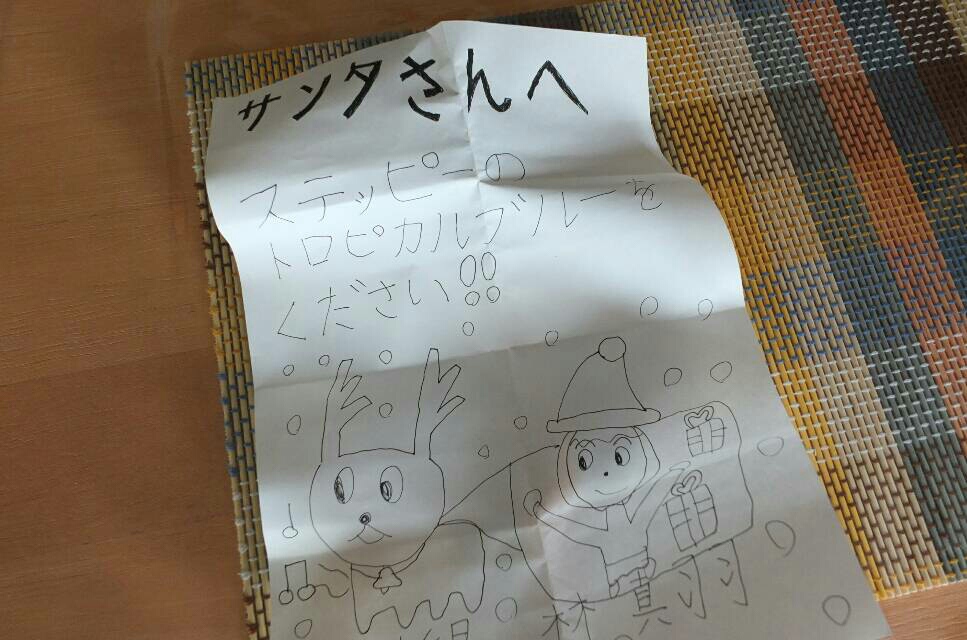 サンタさんへ
ステッピーの
トロピカルブルーを
ください!!
組 森 真羽